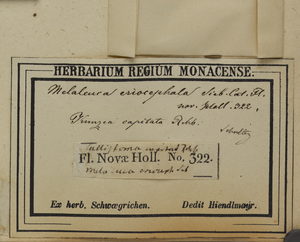 HERBARIUM REGIUM MONACENSE.
Melaleuca eriocephala Sieb. Cat. Fl.
nov. Holl. 322.
Kunzea capitata Rchb.
Schultz
capitat Rchb
Fl. Novæ Holl. No. 322.
Ex herb. Schwægrichen. Dedit Hiendlmayr.